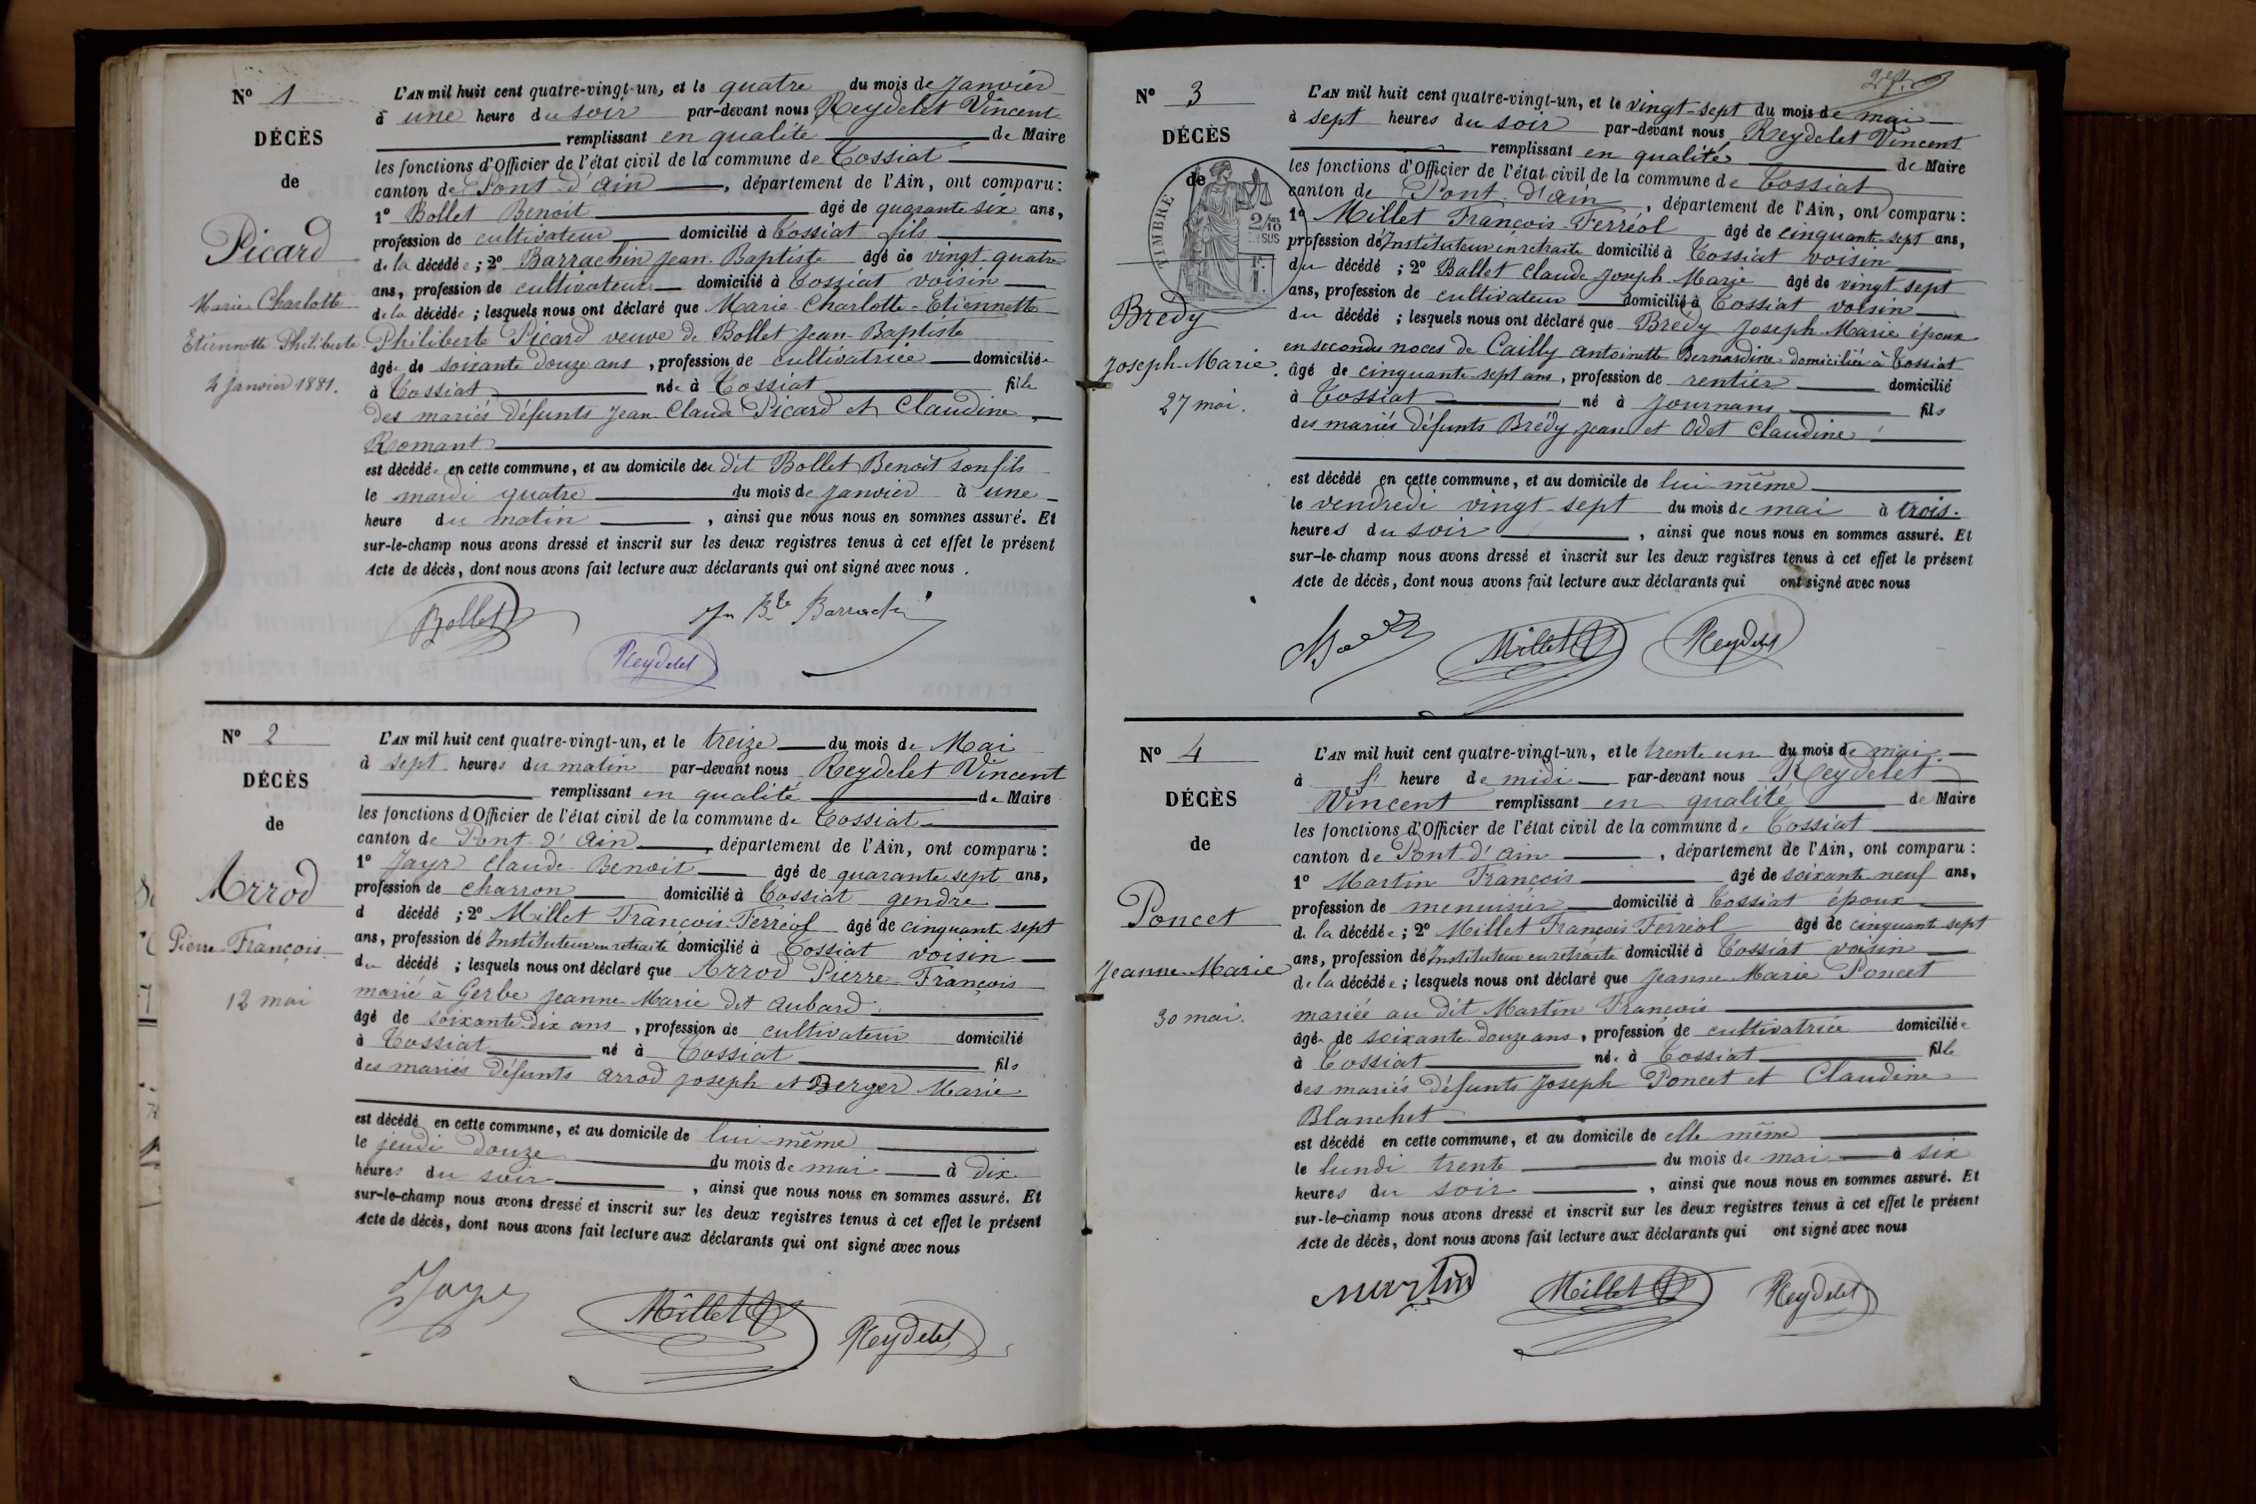 N° 1
DÉCÈS
de
Picard
Marie Charlotte
Etiennette Philiberte
4 Janvier 1881.
L'AN mil huit cent quatre-vingt-un, et le quatre du mois de Janvier
à une heure du soir par-devant nous Reydelet Vincent
remplissant en qualité de Maire
les fonctions d'Officier de l'état civil de la commune de Tossiat
canton de Pont d'ain, département de l'Ain, ont comparu :
1° Bollet Benoit âgé de quarante six ans,
profession de cultivateur domicilié à Tossiat fils
de la décédée ; 2° Barrachin Jean-Baptiste âgé de vingt-quatre
ans, profession de cultivateur domicilié à Tossiat voisin
de la décédée ; lesquels nous ont déclaré que Marie-Charlotte-Etiennette
Philiberte Picard veuve de Bollet Jean-Baptiste
âgée de soixante douze ans, profession de cultivatrice domiciliée
à Tossiat née à Tossiat fille
des mariés défunts Jean Claude Picard et Claudine
Romant
est décédée en cette commune, et au domicile de dit Bollet Benoit son fils
le mardi quatre du mois de Janvier à une
heure du matin, ainsi que nous nous en sommes assuré. Et
sur-le-champ nous avons dressé et inscrit sur les deux registres tenus à cet effet le présent
Acte de décès, dont nous avons fait lecture aux déclarants qui ont signé avec nous.
Bollet Jn Bte Barrachin
Reydelet
N° 2
DÉCÈS
de
Arrod
Pierre François
12 mai
L'AN mil huit cent quatre-vingt-un, et le treize du mois de Mai
à sept heures du matin par-devant nous Reydelet Vincent
remplissant en qualité de Maire
les fonctions d'Officier de l'état civil de la commune de Tossiat
canton de Pont d'Ain, département de l'Ain, ont comparu :
1° Jayr Claude-Benoit âgé de quarante sept ans,
profession de charron domicilié à Tossiat gendre
d décédé ; 2° Millet François-Ferréol âgé de cinquante sept
ans, profession de Instituteur en retraite domicilié à Tossiat voisin
du décédé ; lesquels nous ont déclaré que Arrod Pierre-François
marié à Gerbe Jeanne-Marie dit aubard
âgé de soixante dix ans, profession de cultivateur domicilié
à Tossiat né à Tossiat fils
des mariés défunts arrod Joseph et Berger Marie
est décédé en cette commune, et au domicile de lui-même
le jeudi douze du mois de mai à dix
heures du soir, ainsi que nous nous en sommes assuré. Et
sur-le-champ nous avons dressé et inscrit sur les deux registres tenus à cet effet le présent
Acte de décès, dont nous avons fait lecture aux déclarants qui ont signé avec nous
Jayr Millet Reydelet
N° 3
DÉCÈS
de
TIMBRE
2/10
SUS
Bredy
Joseph-Marie.
27 mai.
L'AN mil huit cent quatre-vingt-un, et le vingt-sept du mois de mai
à sept heures du soir par-devant nous Reydelet Vincent
remplissant en qualité de Maire
les fonctions d'Officier de l'état civil de la commune de Tossiat
canton de Pont d'ain, département de l'Ain, ont comparu :
1° Millet François-Ferréol âgé de cinquante-sept ans,
profession de Instituteur en retraite domicilié à Tossiat voisin
du décédé ; 2° Ballet Claude Joseph Marie âgé de vingt sept
ans, profession de cultivateur domicilié à Tossiat voisin
du décédé ; lesquels nous ont déclaré que Brédy Joseph-Marie époux
en secondes noces de Cailly antoinette Bernardine domiciliée à Tossiat
âgé de cinquante sept ans, profession de rentier domicilié
à Tossiat né à Journans fils
des mariés défunts Brédy Jean et Odet Claudine
est décédé en cette commune, et au domicile de lui même
le vendredi vingt-sept du mois de mai à trois
heures du soir, ainsi que nous nous en sommes assuré. Et
sur-le-champ nous avons dressé et inscrit sur les deux registres tenus à cet effet le présent
Acte de décès, dont nous avons fait lecture aux déclarants qui ont signé avec nous
Millet Reydelet
N° 4
DÉCÈS
de
Poncet
Jeanne-Marie
30 mai.
L'AN mil huit cent quatre-vingt-un, et le trente un du mois de mai
à heure de midi par-devant nous Reydelet
Vincent remplissant en qualité de Maire
les fonctions d'Officier de l'état civil de la commune de Tossiat
canton de Pont d'ain, département de l'Ain, ont comparu :
1° Martin François âgé de soixante neuf ans,
profession de menuisier domicilié à Tossiat époux
de la décédée ; 2° Millet François Ferréol âgé de cinquante-sept
ans, profession de Instituteur en retraite domicilié à Tossiat voisin
de la décédée ; lesquels nous ont déclaré que Jeanne Marie Poncet
mariée au dit Martin François
âgée de soixante douze ans, profession de cultivatrice domiciliée
à Tossiat née à Tossiat fille
des mariés défunts Joseph Poncet et Claudine
Blanchet
est décédé en cette commune, et au domicile de elle même
le lundi trente du mois de mai à six
heures du soir, ainsi que nous nous en sommes assuré. Et
sur-le-champ nous avons dressé et inscrit sur les deux registres tenus à cet effet le présent
Acte de décès, dont nous avons fait lecture aux déclarants qui ont signé avec nous
Martin Millet Reydelet